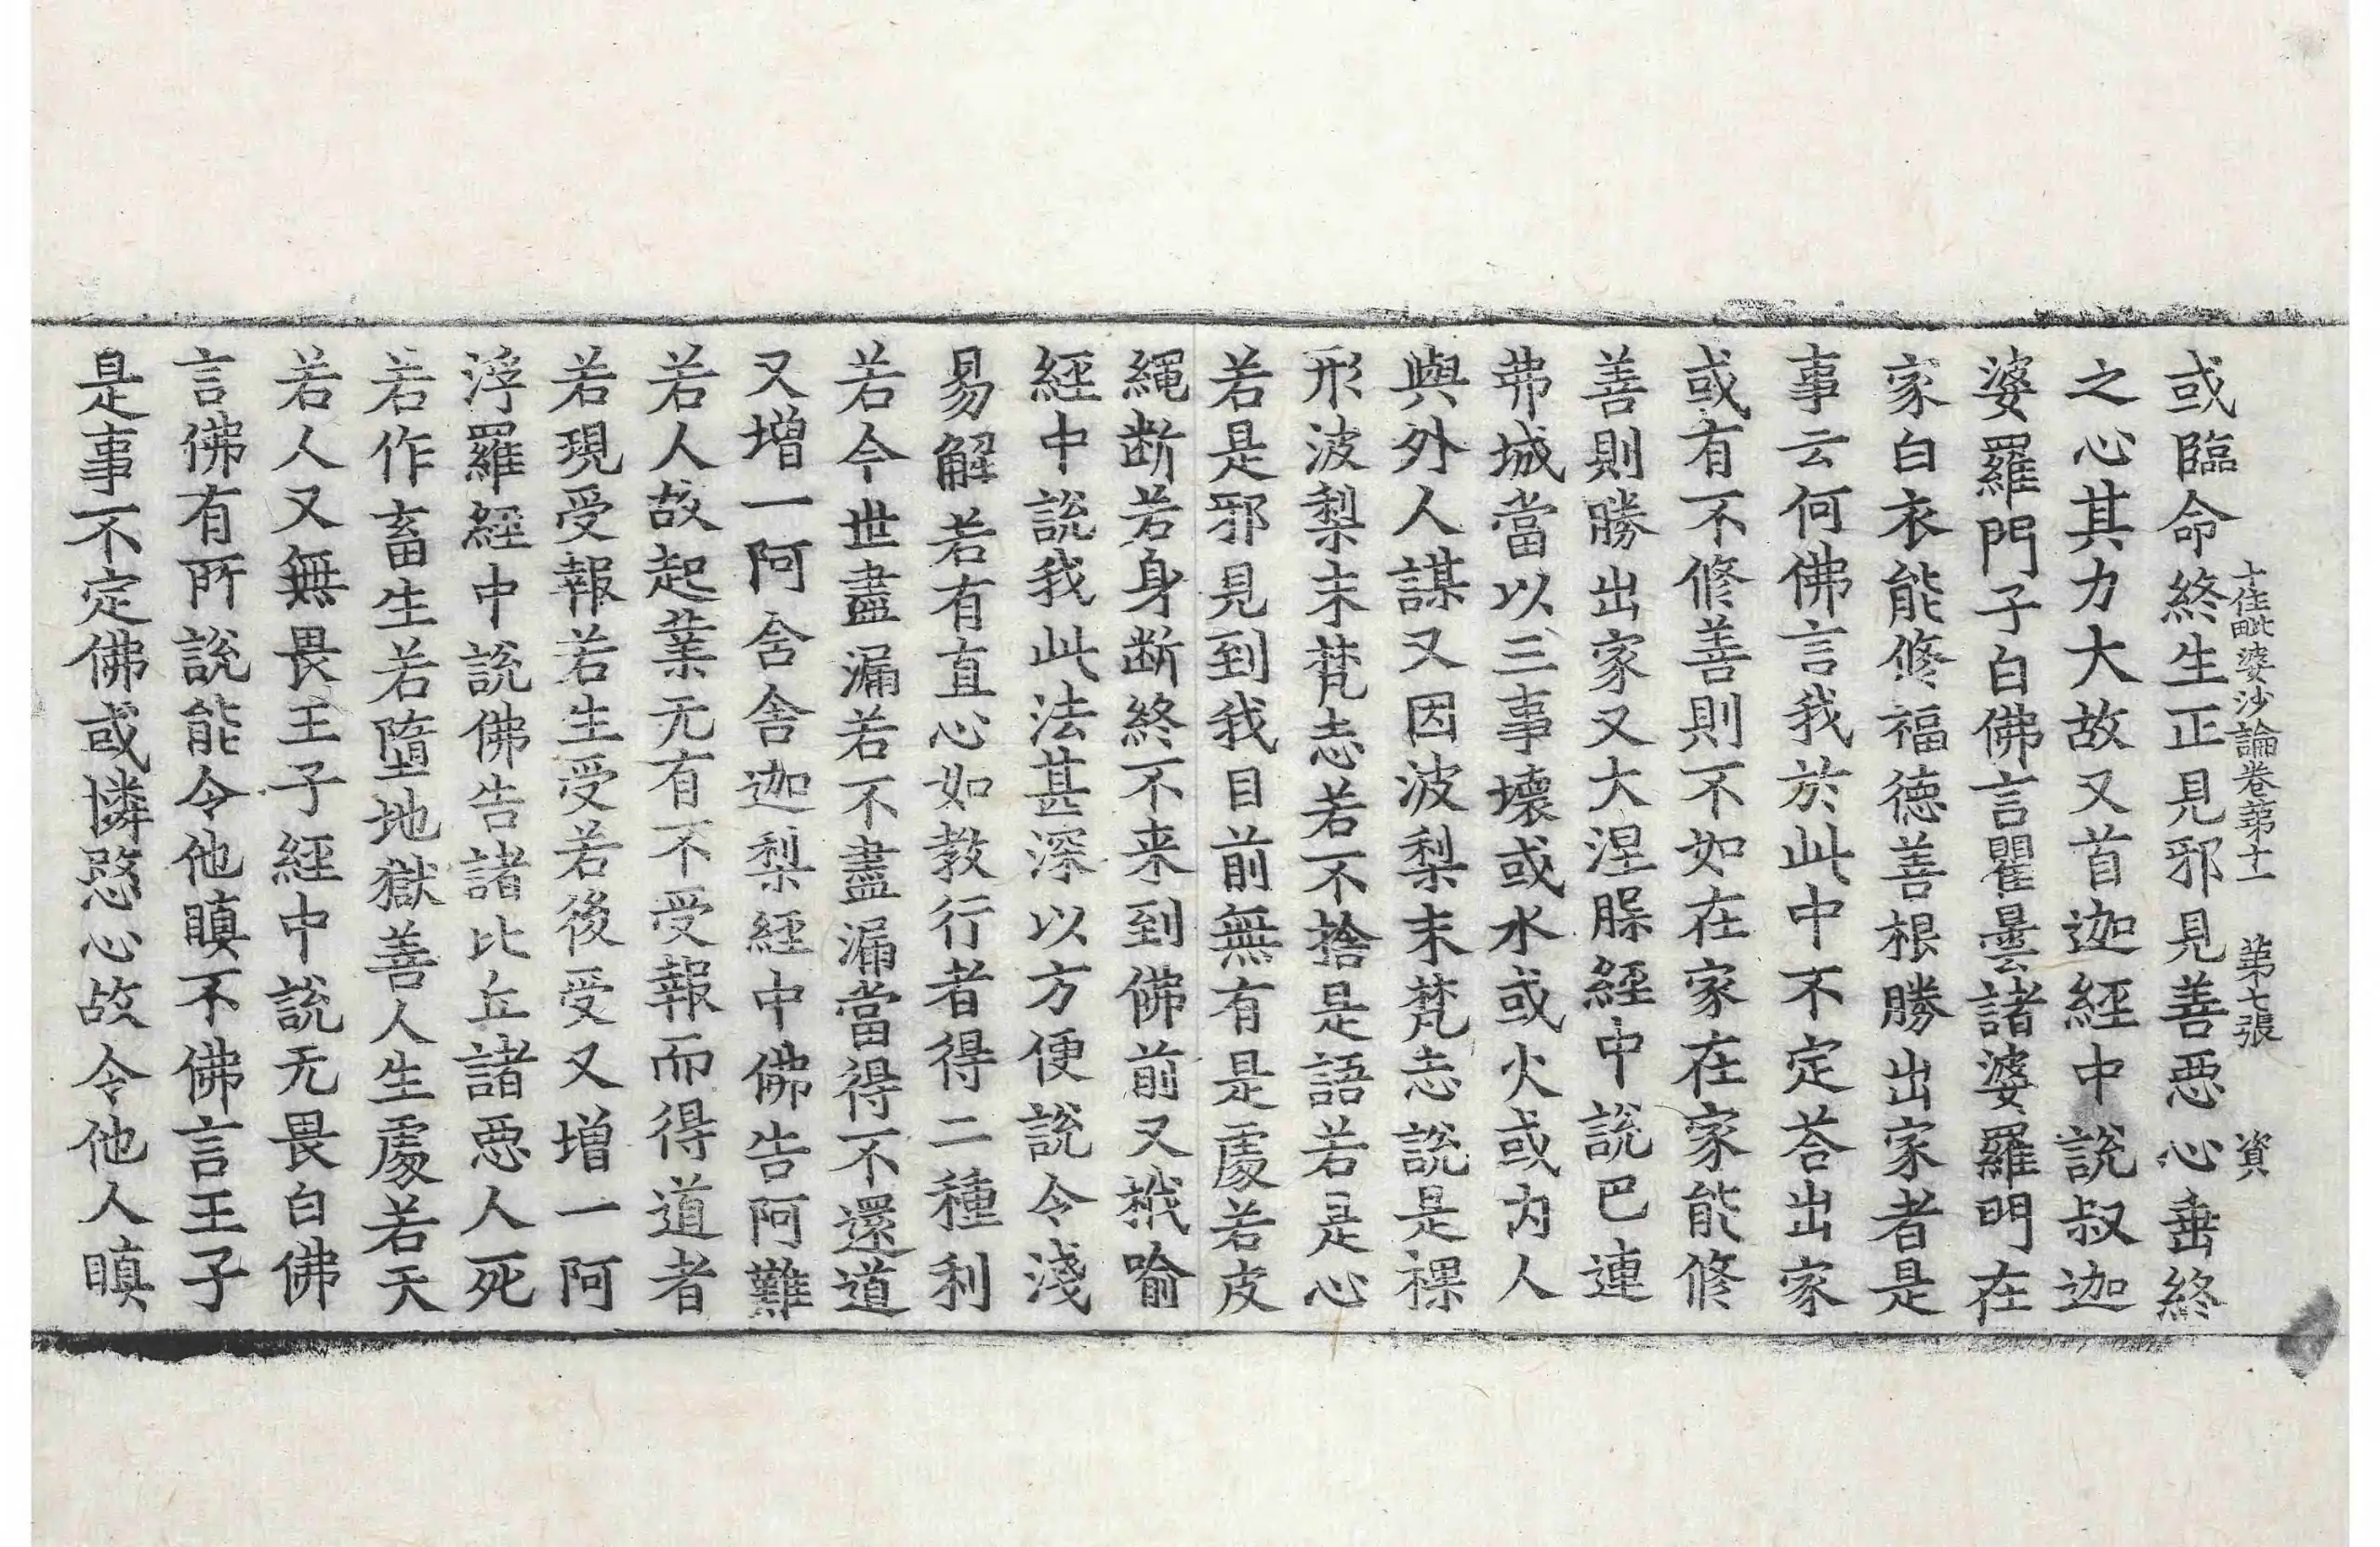 十住毗婆沙論卷第十一 第七張 資
或臨命終生正見邪見善惡心垂終
之心其力大故又首迦經中說叔迦
婆羅門子白佛言瞿曇諸婆羅門在
家白衣能修福德善根勝出家者是
事云何佛言我於此中不定荅出家
或有不修善則不如在家在家能修
善則勝出家又大涅槃經中說巴連
弗城當以三事壞或水或火或內人
與外人謀又因波梨末梵志說是裸
形波梨末梵志若不捨是語若是心
若是邪見到我目前無有是處若皮
繩断若身断終不来到佛前又栰喻
經中說我此法甚深以方便說令淺
易解若有直心如教行者得二種利
若今世盡漏若不盡漏當得不還道
又增一阿含舍迦梨經中佛告阿難
若人故起業无有不受報而得道者
若現受報若生受若後受又增一阿
浮羅經中說佛告諸比丘諸惡人死
若作畜生若墮地獄善人生處若天
若人又無畏王子經中說无畏白佛
言佛有所說能令他瞋不佛言王子
是事不定佛或憐愍心故令他人瞋